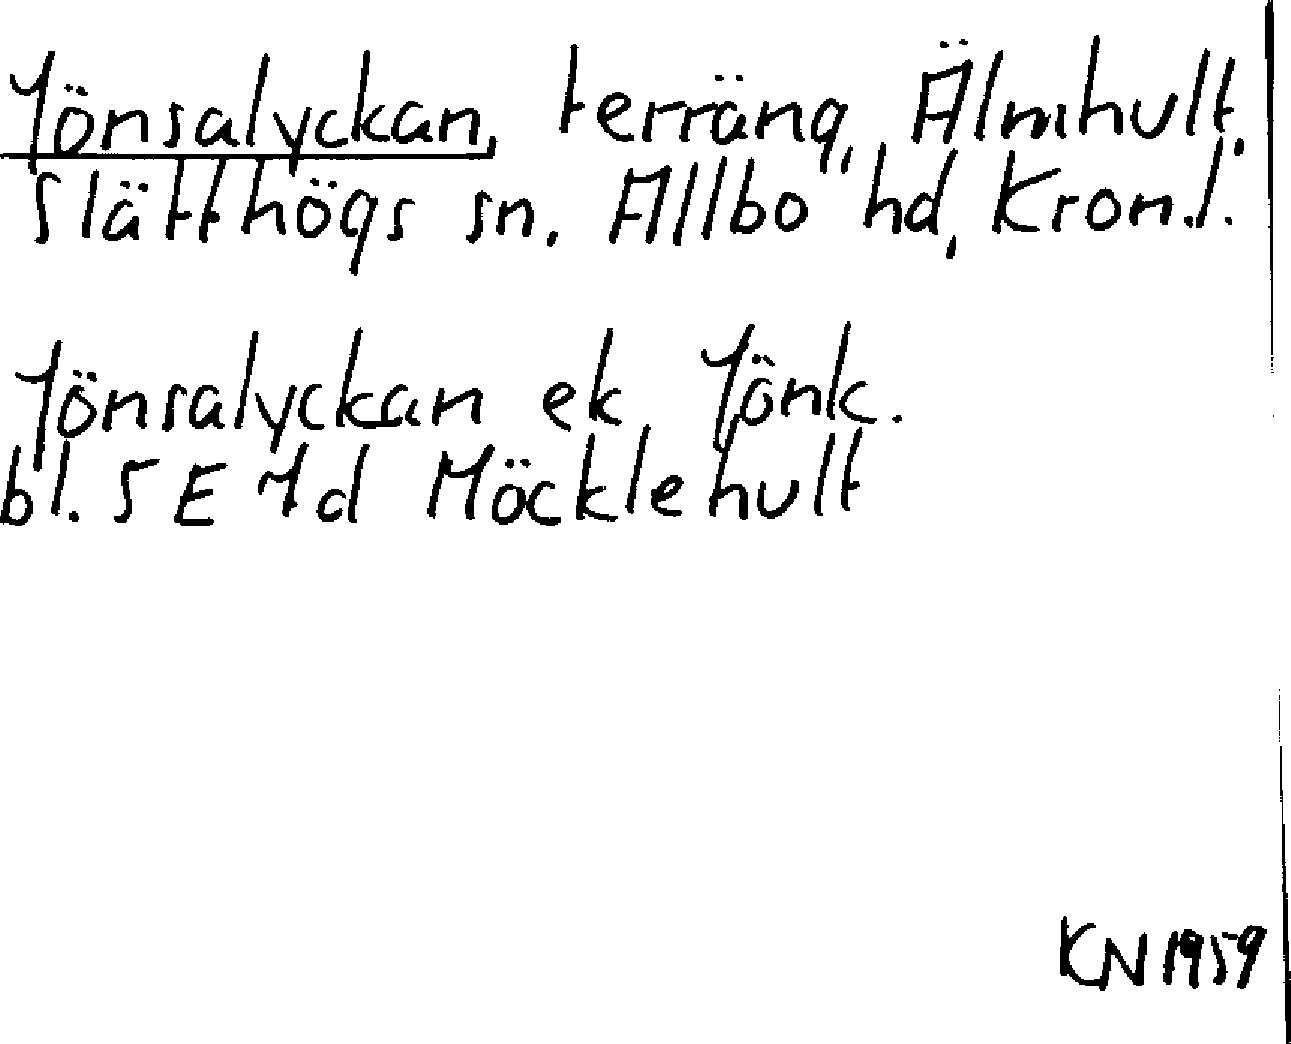 Jönsalyckan, terräng, Älmhult,
Slätthögs sn. Allbo hd, Kron.l.
Jönsalyckan ek Jönk.
bl. 5 E 7d Möcklehult
KN 1959